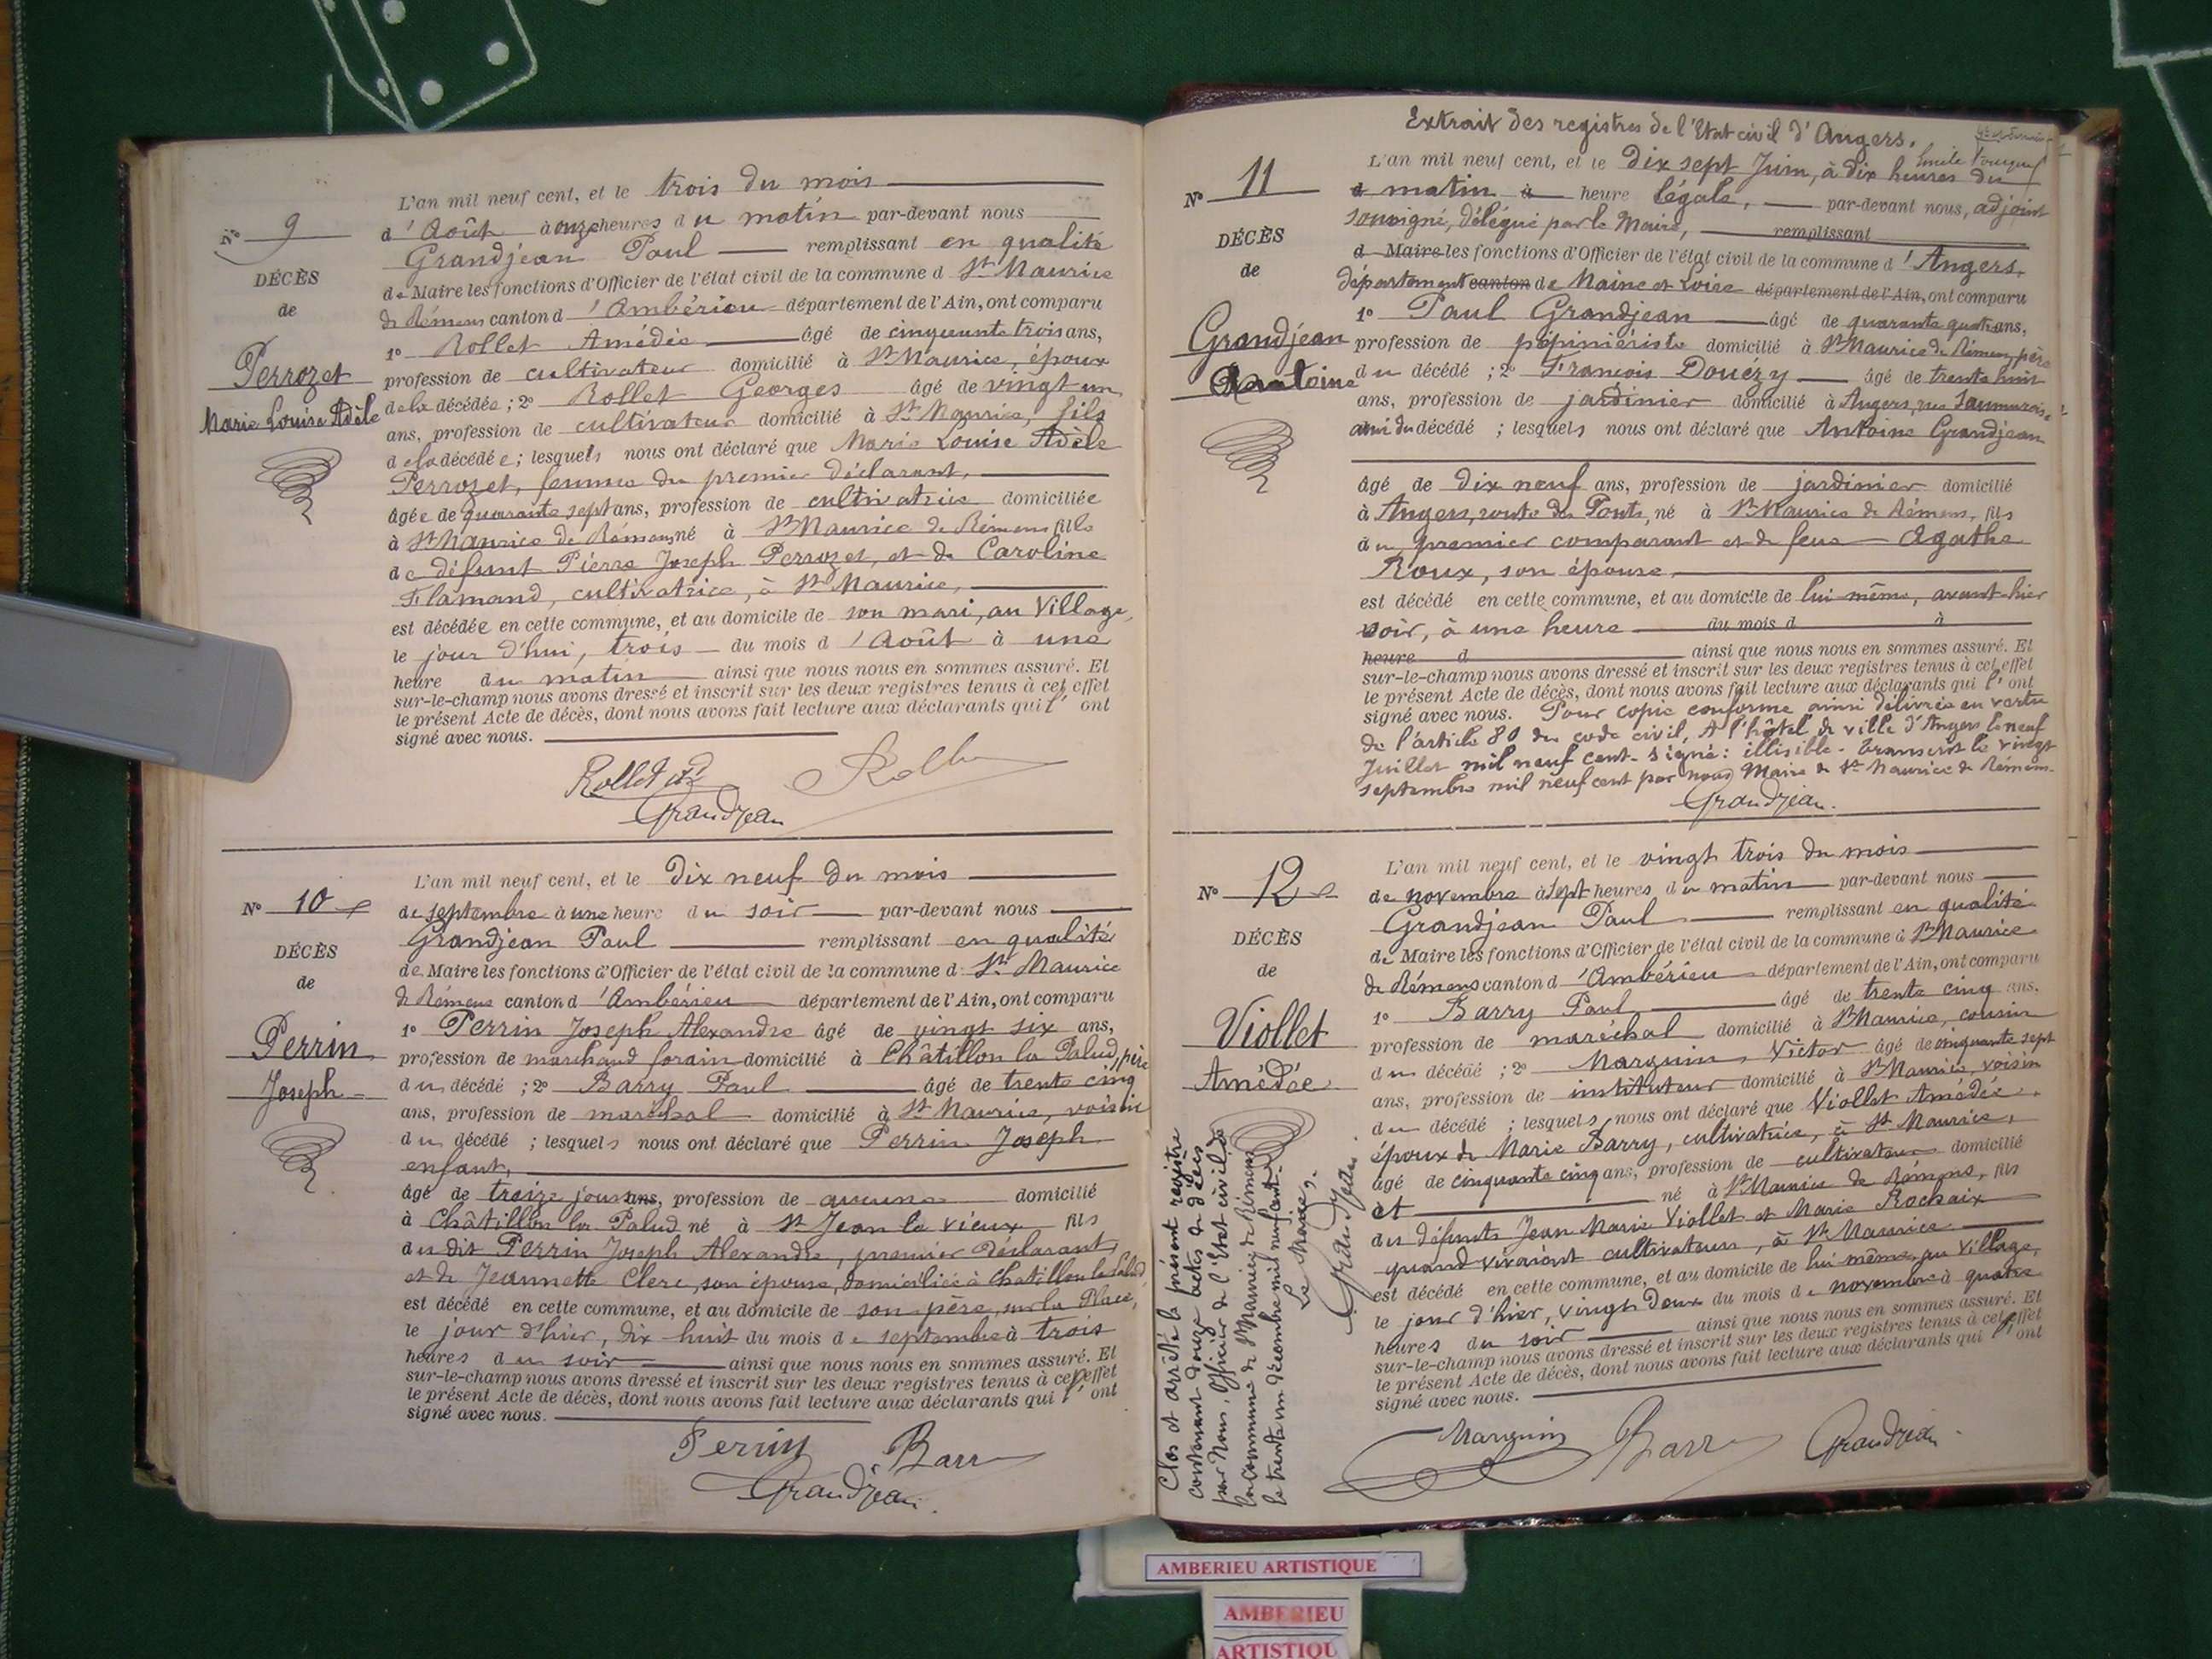 N° 9
DÉCÈS
de
Perrozet
Marie Louise Adèle
L'an mil neuf cent, et le trois du mois
d'Août à onze heures du matin par-devant nous
Grandjean Paul remplissant en qualité
de Maire les fonctions d'Officier de l'état civil de la commune d St Maurice
de Rémens canton d'Ambérieu département de l'Ain, ont comparu
1° Rollet Amédée âgé de cinquante trois ans,
profession de cultivateur domicilié à St Maurice, époux
de la décédée ; 2° Rollet Georges âgé de vingt un
ans, profession de cultivateur domicilié à St Maurice, fils
de la décédée ; lesquels nous ont déclaré que Marie Louise Adèle
Perrozet, femme du premier déclarant,
âgée de quarante sept ans, profession de cultivatrice domiciliée
à St Maurice de Rémens, né à St Maurice de Rémens fille
de défunt Pierre Joseph Perrozet, et de Caroline
Flamand, cultivatrice, à St Maurice,
est décédée en cette commune, et au domicile de son mari, au Village,
le jour d'hui, trois du mois d'Août à une
heure du matin ainsi que nous nous en sommes assuré. Et
sur-le-champ nous avons dressé et inscrit sur les deux registres tenus à cet effet
le présent Acte de décès, dont nous avons fait lecture aux déclarants qui l'ont
signé avec nous.
Rollet
Grandjean
N° 10
DÉCÈS
de
Perrin
Joseph
L'an mil neuf cent, et le dix neuf du mois
de septembre à une heure du soir par-devant nous
Grandjean Paul remplissant en qualité
de Maire les fonctions d'Officier de l'état civil de la commune d St Maurice
de Rémens canton d'Ambérieu département de l'Ain, ont comparu
1° Perrin Joseph Alexandre âgé de vingt six ans,
profession de marchand forain domicilié à Châtillon la Palud, père
du décédé ; 2° Barry Paul âgé de trente cinq
ans, profession de maréchal domicilié à St Maurice, voisin
du décédé ; lesquels nous ont déclaré que Perrin Joseph
enfant,
âgé de treize jours ans, profession de aucune domicilié
à Châtillon la Palud né à St Jean le Vieux fils
du dit Perrin Joseph Alexandre, premier déclarant,
et de Jeannette Clerc, son épouse, domiciliée à Chatillon la Palud,
est décédé en cette commune, et au domicile de son père, sur la Place,
le jour d'hier, dix huit du mois de septembre à trois
heures du soir ainsi que nous nous en sommes assuré. Et
sur-le-champ nous avons dressé et inscrit sur les deux registres tenus à cet effet
le présent Acte de décès, dont nous avons fait lecture aux déclarants qui l'ont
signé avec nous.
Perrin Barry
Grandjean
Extrait des registres de l'Etat civil d'Angers.
N° 11
DÉCÈS
de
Grandjean
Antoine
L'an mil neuf cent, et le dix sept Juin, à dix heures du
d matin à heure légale, par-devant nous, adjoint
soussigné, délégué par le Maire, remplissant
d Maire les fonctions d'Officier de l'état civil de la commune d'Angers,
département canton de Maine et Loire département de l'Ain, ont comparu
1° Paul Grandjean âgé de quarante quatre ans,
profession de pépiniériste domicilié à St Maurice de Rémens, père
du décédé ; 2° François Douézy âgé de trente huit
ans, profession de jardinier domicilié à Angers, rue Saumuroise
ami du décédé ; lesquels nous ont déclaré que Antoine Grandjean
âgé de dix neuf ans, profession de jardinier domicilié
à Angers, route des Ponts, né à St Maurice de Rémens, fils
du premier comparant et de feue Agathe
Roux, son épouse,
est décédé en cette commune, et au domicile de lui même, avant-hier
soir, à une heure du mois d à
heure d ainsi que nous nous en sommes assuré. Et
sur-le-champ nous avons dressé et inscrit sur les deux registres tenus à cet effet
le présent Acte de décès, dont nous avons fait lecture aux déclarants qui l'ont
signé avec nous. Pour copie conforme ainsi délivrée en vertu
de l'article 80 du code civil, A l'hôtel de ville d'Angers le neuf
Juillet mil neuf cent. signé : illisible. Transcrit le vingt
septembre mil neuf cent par nous Maire de St Maurice de Rémens.
Grandjean
N° 12
DÉCÈS
de
Viollet
Amédée
L'an mil neuf cent, et le vingt trois du mois
de novembre à sept heures du matin par-devant nous
Grandjean Paul remplissant en qualité
de Maire les fonctions d'Officier de l'état civil de la commune d St Maurice
de Rémens canton d'Ambérieu département de l'Ain, ont comparu
1° Barry Paul âgé de trente cinq ans,
profession de maréchal domicilié à St Maurice, cousin
du décédé ; 2° Marguin Victor âgé de cinquante sept
ans, profession de instituteur domicilié à St Maurice, voisin
du décédé ; lesquels nous ont déclaré que Viollet Amédée,
époux de Marie Barry, cultivatrice, à St Maurice,
âgé de cinquante cinq ans, profession de cultivateur domicilié
et né à St Maurice de Rémens, fils
des défunts Jean Marie Viollet et Marie Rochaix
quand vivaient cultivateurs, à St Maurice
est décédé en cette commune, et au domicile de lui même, au Village,
le jour d'hier, vingt deux du mois de novembre à quatre
heures du soir ainsi que nous nous en sommes assuré. Et
sur-le-champ nous avons dressé et inscrit sur les deux registres tenus à cet effet
le présent Acte de décès, dont nous avons fait lecture aux déclarants qui l'ont
signé avec nous.
Marguin Barry Grandjean
Clos et arrêté le présent registre
contenant douze actes de décès
par Nous, Officier de l'Etat civil de
la commune de St Maurice de Rémens
le trente un décembre mil neuf cent.
Le Maire,
Grandjean
AMBERIEU ARTISTIQUE
AMBERIEU
ARTISTIQU